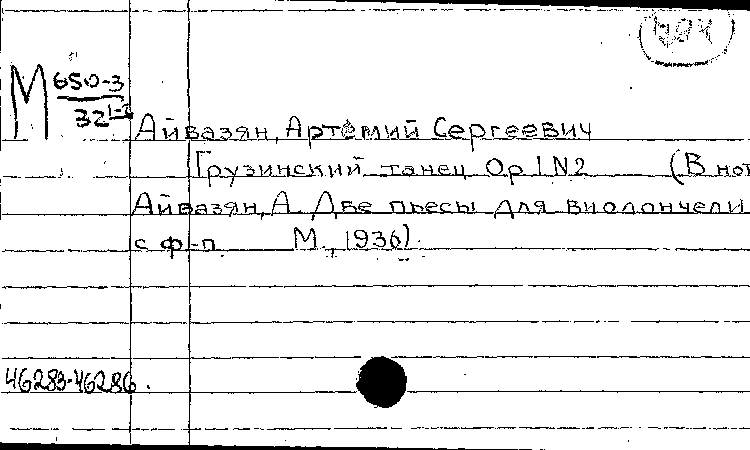 М 650-3
32
Айвазян, Артемий Сергеевич
Грузинский танец Op 1 N2 (В нот
Айвазян, А. Две пьесы для виолончели
с ф-п. М., 1936).
46283-46286.